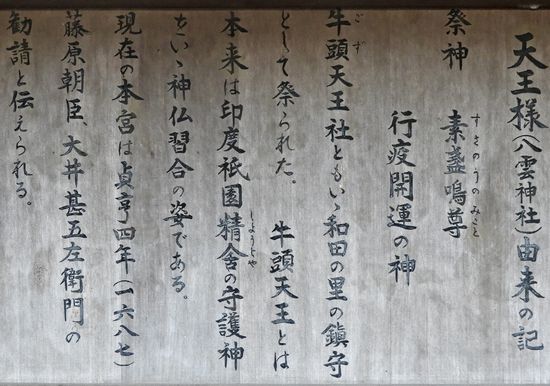 天王様(八雲神社)由来の記
祭神 素盞嗚尊
すさのうのみこと
行疫開運の神
牛頭天王社ともいゝ和田の里の鎮守
ごず
として祭られた。 牛頭天王とは
本来は印度祇園精舎の守護神
しょうじゃ
をいゝ神仏習合の姿である。
現在の本宮は貞亨四年(一六八七)
藤原朝臣、大井甚五左衛門の
勧請と伝えられる。